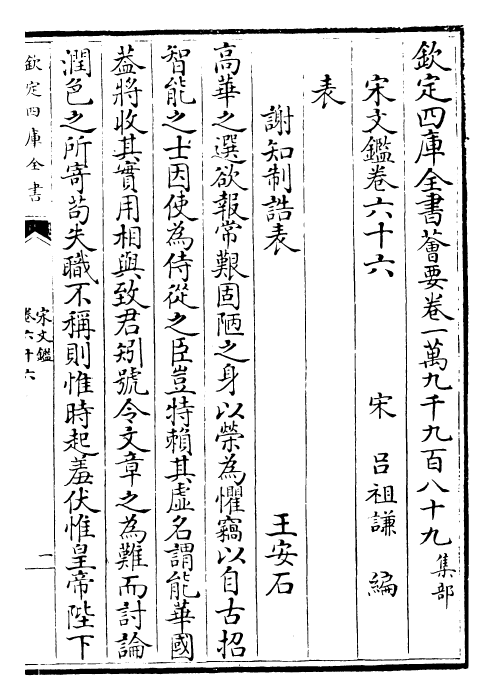 欽定四庫全書薈要卷一萬九千九百八十九集部
宋文鑑卷六十六 宋 呂祖謙 編
表
謝知制誥表 王安石
高華之選欲報常艱固陋之身以榮為懼竊以自古招
智能之士因使為侍從之臣豈特賴其虛名謂能華國
葢將收其實用相與致君矧號令文章之為難而討論
潤色之所寄苟失職不稱則惟時起羞伏惟皇帝陛下
欽定四庫全書
宋文鑑
卷六十六
一